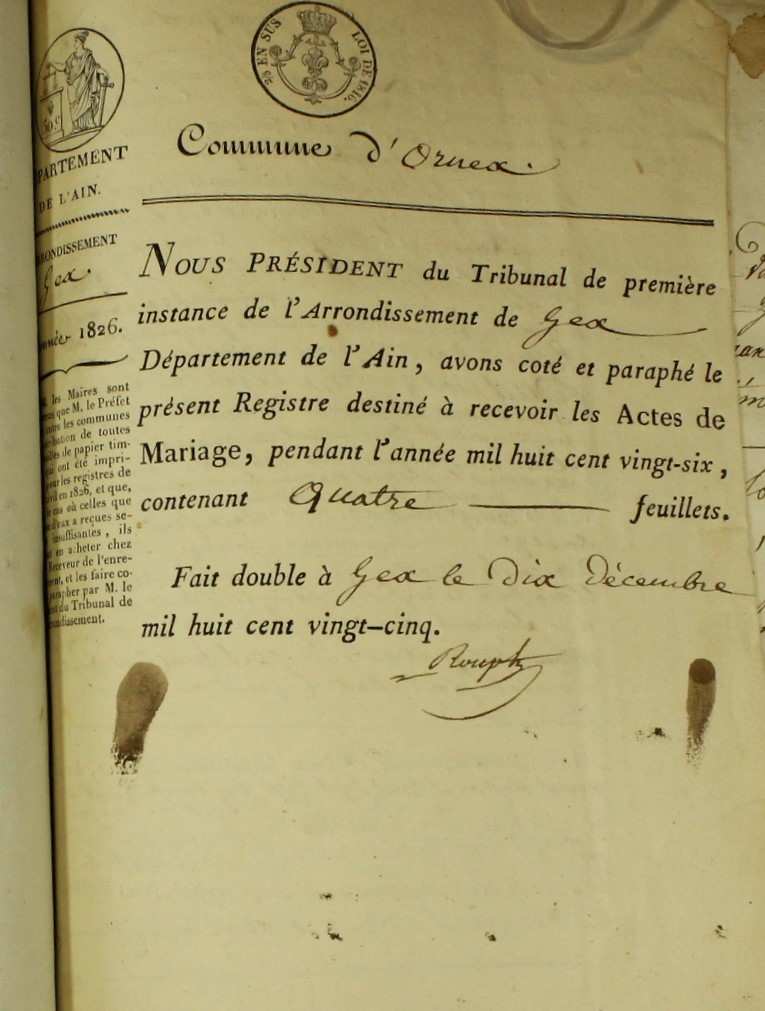 25 EN SUS
LOI DE 1816.
50 C
PARTEMENT
DE L'AIN.
ONDISSEMENT
Gex.
nnée 1826.
les Maires sont
que M. le Préfet
les communes
de toutes
de papier tim-
ont été impri-
les registres de
en 1826, et que,
cas où celles que
d'eux a reçues se-
insuffisantes, ils
en acheter chez
Receveur de l'enre-
, et les faire co-
parapher par M. le
du Tribunal de
ndissement.
Commune d'Ornex.
NOUS PRÉSIDENT du Tribunal de première
instance de l'Arrondissement de Gex
Département de l'Ain, avons coté et paraphé le
présent Registre destiné à recevoir les Actes de
Mariage, pendant l'année mil huit cent vingt-six,
contenant Quatre feuillets.
Fait double à Gex le Dix Décembre
mil huit cent vingt-cinq.